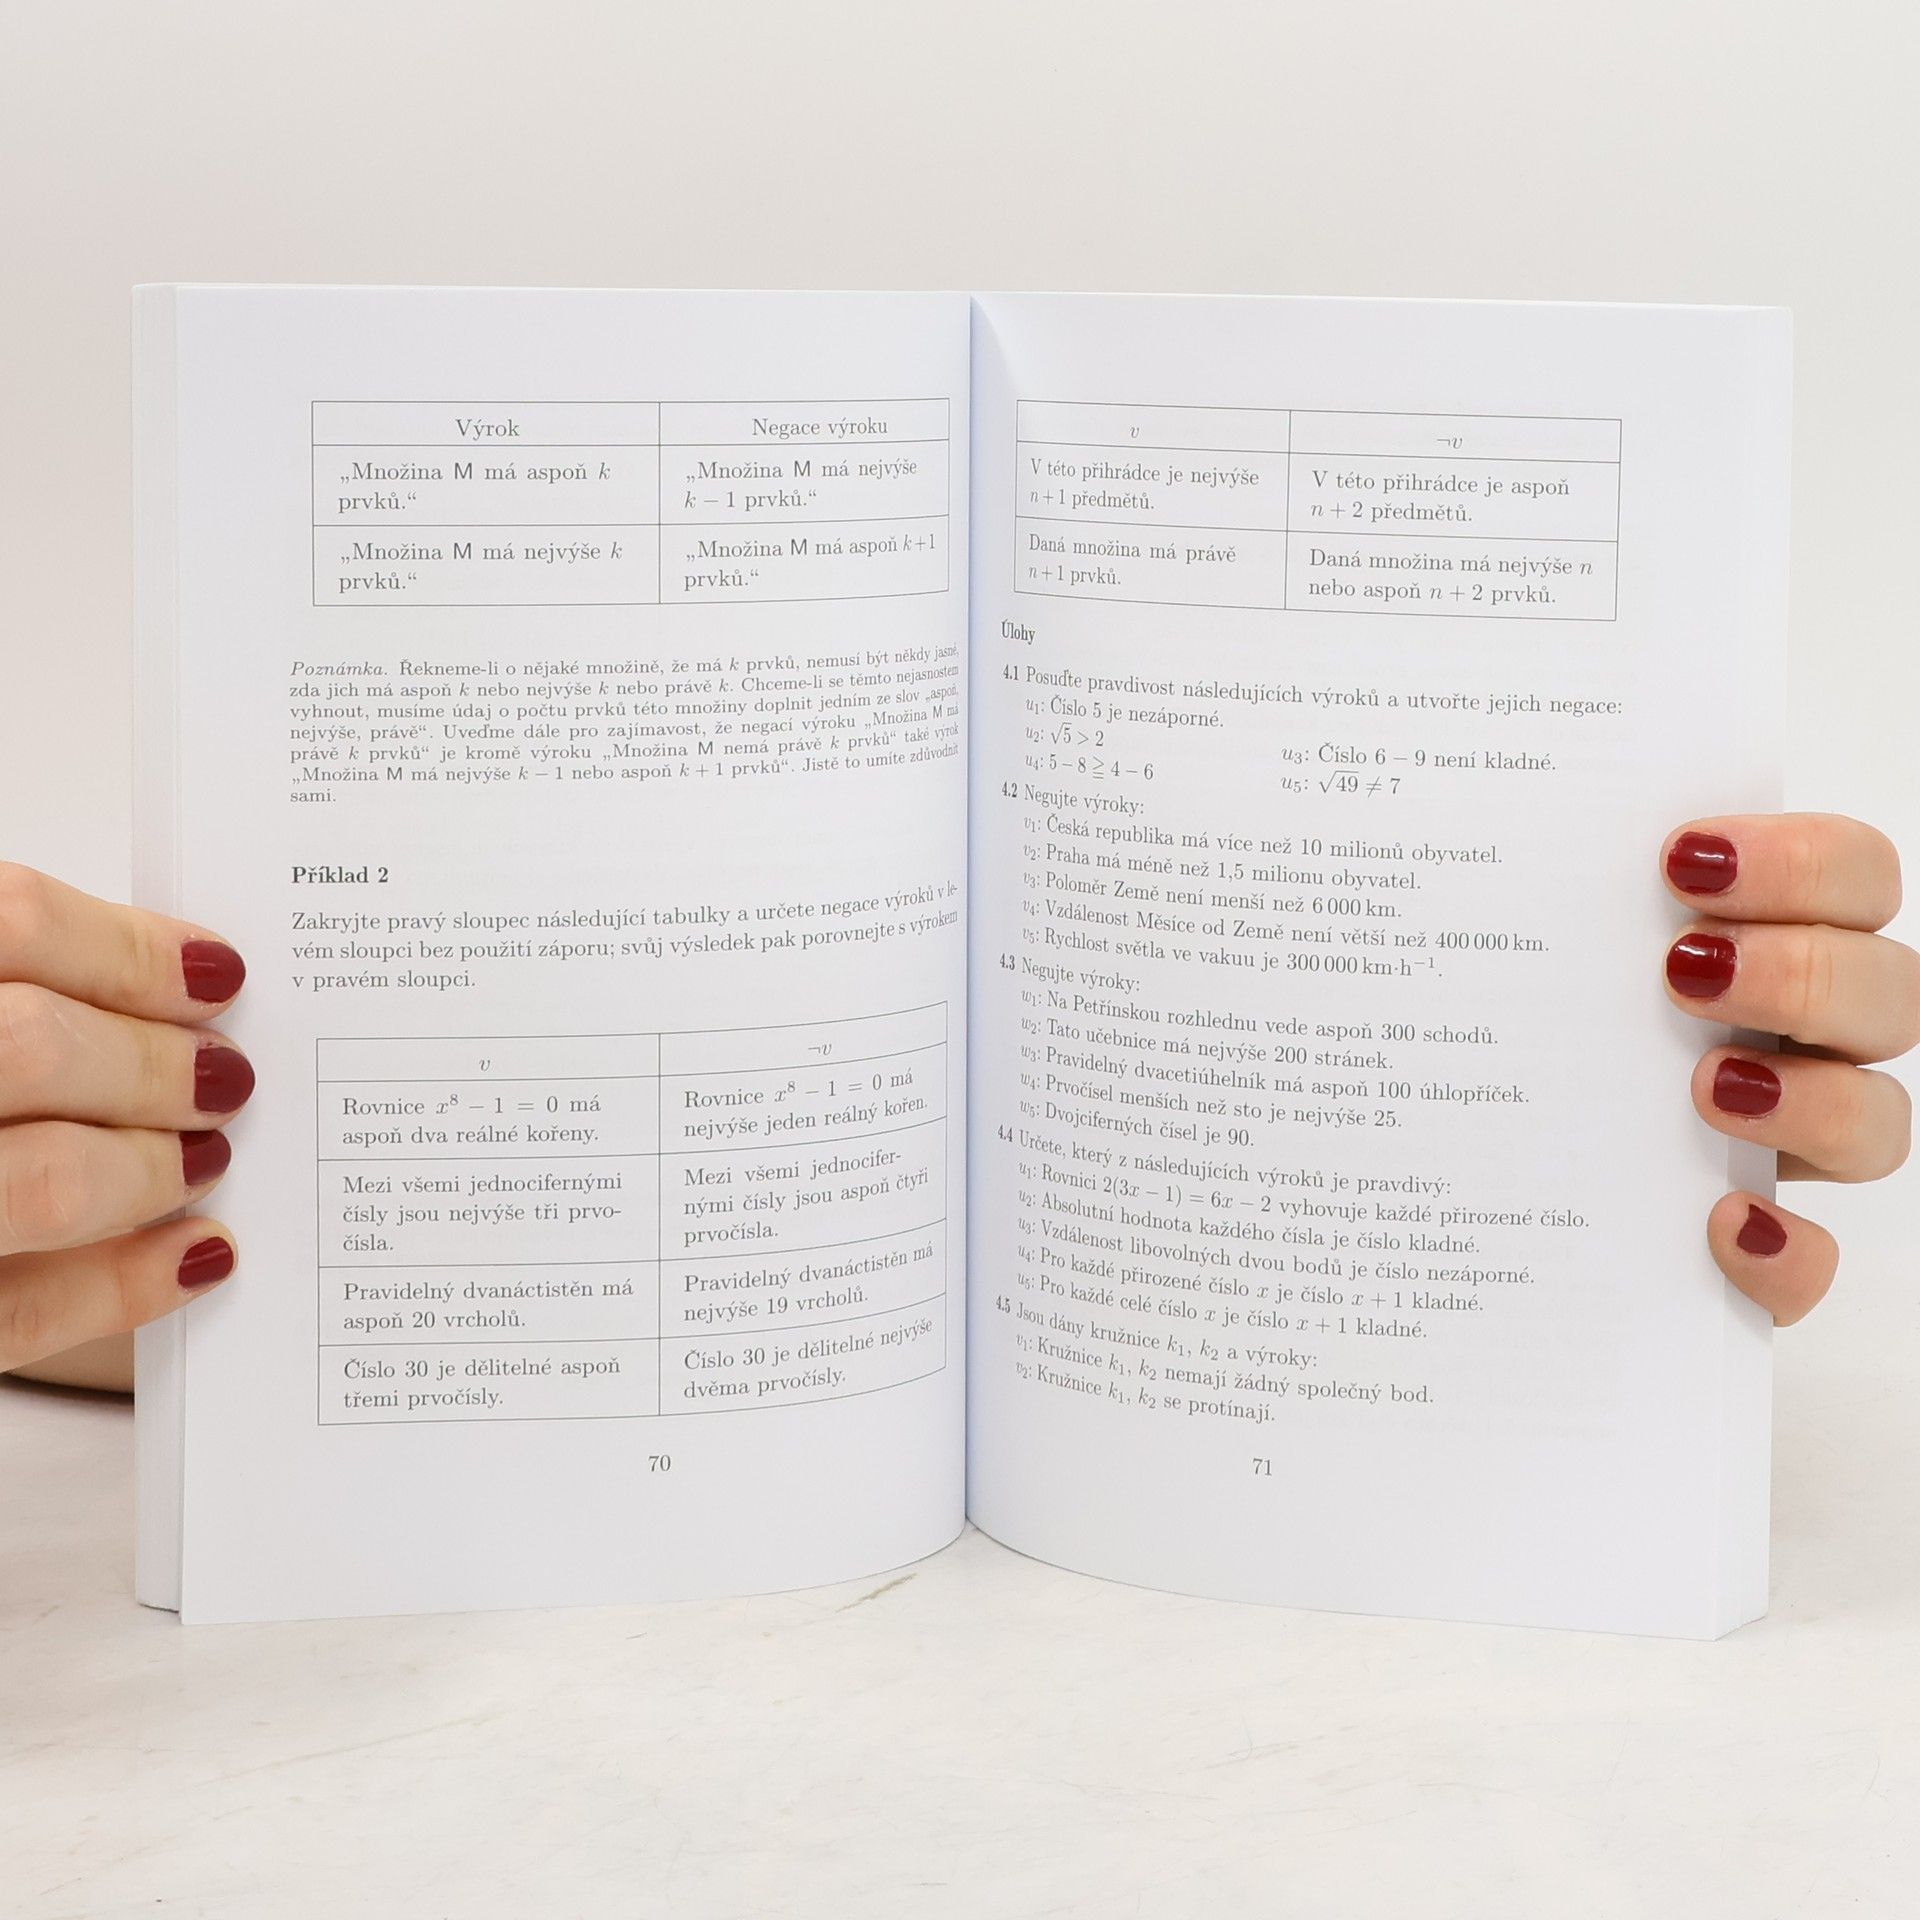 Výrok	Negace výroku
„Množina M má aspoň k	„Množina M má nejvýše
prvků.“	k − 1 prvků.“
„Množina M má nejvýše k	„Množina M má aspoň k+1
prvků.“	prvků.“
Poznámka. Řekneme-li o nějaké množině, že má k prvků, nemusí být někdy jasné,
zda jich má aspoň k nebo nejvýše k nebo právě k. Chceme-li se těmto nejasnostem
vyhnout, musíme údaj o počtu prvků této množiny doplnit jedním ze slov „aspoň,
nejvýše, právě“. Uveďme dále pro zajímavost, že negací výroku „Množina M má
právě k prvků“ je kromě výroku „Množina M nemá právě k prvků“ také výrok
„Množina M má nejvýše k − 1 nebo aspoň k + 1 prvků“. Jistě to umíte zdůvodnit
sami.
Příklad 2
Zakryjte pravý sloupec následující tabulky a určete negace výroků v le-
vém sloupci bez použití záporu; svůj výsledek pak porovnejte s výrokem
v pravém sloupci.
v	¬v
Rovnice x⁸ − 1 = 0 má	Rovnice x⁸ − 1 = 0 má
aspoň dva reálné kořeny.	nejvýše jeden reálný kořen.
Mezi všemi jednocifernými	Mezi všemi jednocifer-
čísly jsou nejvýše tři prvo-	nými čísly jsou aspoň čtyři
čísla.	prvočísla.
Pravidelný dvanáctistěn má	Pravidelný dvanáctistěn má
aspoň 20 vrcholů.	nejvýše 19 vrcholů.
Číslo 30 je dělitelné aspoň	Číslo 30 je dělitelné nejvýše
třemi prvočísly.	dvěma prvočísly.
70
v	¬v
V této přihrádce je nejvýše	V této přihrádce je aspoň
n + 1 předmětů.	n + 2 předmětů.
Daná množina má právě	Daná množina má nejvýše n
n + 1 prvků.	nebo aspoň n + 2 prvků.
Úlohy
4.1 Posuďte pravdivost následujících výroků a utvořte jejich negace:
u₁: Číslo 5 je nezáporné.
u₂: √5 > 2	u₃: Číslo 6 − 9 není kladné.
u₄: 5 − 8 ≧ 4 − 6	u₅: √49 ≠ 7
4.2 Negujte výroky:
v₁: Česká republika má více než 10 milionů obyvatel.
v₂: Praha má méně než 1,5 milionu obyvatel.
v₃: Poloměr Země není menší než 6 000 km.
v₄: Vzdálenost Měsíce od Země není větší než 400 000 km.
v₅: Rychlost světla ve vakuu je 300 000 km·h⁻¹.
4.3 Negujte výroky:
w₁: Na Petřínskou rozhlednu vede aspoň 300 schodů.
w₂: Tato učebnice má nejvýše 200 stránek.
w₃: Pravidelný dvacetiúhelník má aspoň 100 úhlopříček.
w₄: Prvočísel menších než sto je nejvýše 25.
w₅: Dvojciferných čísel je 90.
4.4 Určete, který z následujících výroků je pravdivý:
u₁: Rovnici 2(3x − 1) = 6x − 2 vyhovuje každé přirozené číslo.
u₂: Absolutní hodnota každého čísla je číslo kladné.
u₃: Vzdálenost libovolných dvou bodů je číslo nezáporné.
u₄: Pro každé přirozené číslo x je číslo x + 1 kladné.
u₅: Pro každé celé číslo x je číslo x + 1 kladné.
4.5 Jsou dány kružnice k₁, k₂ a výroky:
v₁: Kružnice k₁, k₂ nemají žádný společný bod.
v₂: Kružnice k₁, k₂ se protínají.
71